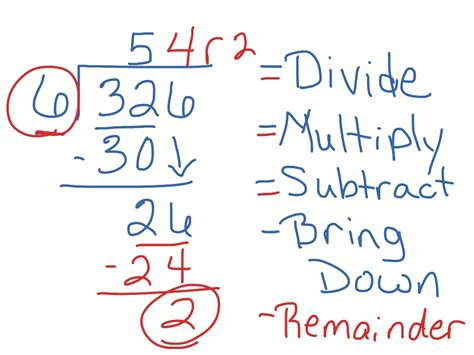 54r2
6)326 = Divide
-30↓ = Multiply
26 = Subtract
-24 - Bring Down
2 - Remainder